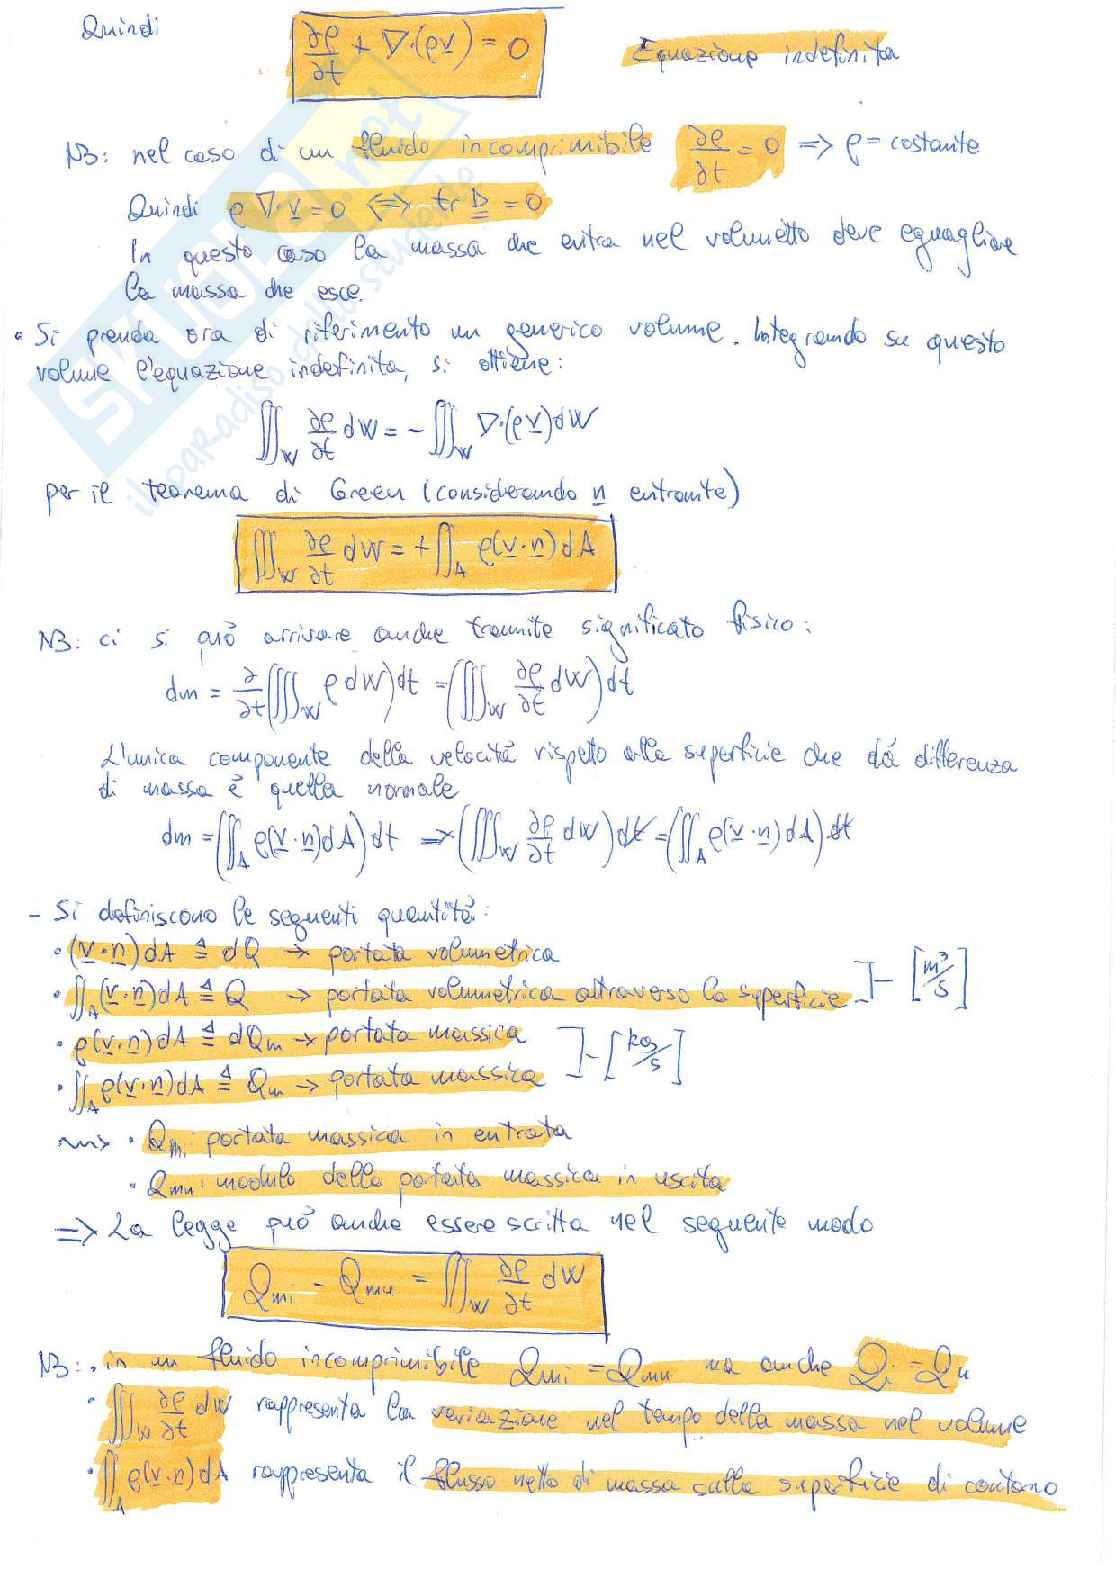 Quindi ∂ρ/∂t + ∇·(ρv) = 0 Equazione indefinita
NB: nel caso di un fluido incomprimibile ∂ρ/∂t = 0 => ρ = costante
Quindi ρ∇·v = 0 <=> tr D = 0
In questo caso la massa che entra nel volumetto deve eguagliare
la massa che esce.
• Si prenda ora di riferimento un generico volume. Integrando su questo
volume l'equazione indefinita, si ottiene:
∭_W ∂ρ/∂t dW = - ∭_W ∇·(ρv)dW
per il teorema di Green (considerando n entrante)
∭_W ∂ρ/∂t dW = + ∬_A ρ(v·n)dA
NB: ci si può arrivare anche tramite significato fisico:
dm = ∂/∂t(∭_W ρ dW)dt = (∭_W ∂ρ/∂t dW)dt
L'unica componente della velocità rispetto alla superficie che dà differenza
di massa è quella normale
dm = (∬_A ρ(v·n)dA)dt → (∭_W ∂ρ/∂t dW)dt = (∬_A ρ(v·n)dA)dt
- Si definiscono le seguenti quantità:
• (v·n)dA ≜ dQ → portata volumetrica
• ∬_A (v·n)dA ≜ Q → portata volumetrica attraverso la superficie ]- [m³/s]
• ρ(v·n)dA ≜ dQm → portata massica
• ∬_A ρ(v·n)dA ≜ Qm → portata massica ]- [kg/s]
• Qmi: portata massica in entrata
• Qmu: modulo della portata massica in uscita
=> La legge può anche essere scritta nel seguente modo
Qmi - Qmu = ∭_W ∂ρ/∂t dW
NB: • in un fluido incomprimibile Qmi = Qmu ma anche Qi = Qu
• ∭_W ∂ρ/∂t dW rappresenta la variazione nel tempo della massa nel volume
• ∬_A ρ(v·n)dA rappresenta il flusso netto di massa sulla superficie di contorno
SKUOLA.net
il paradiso dello studente